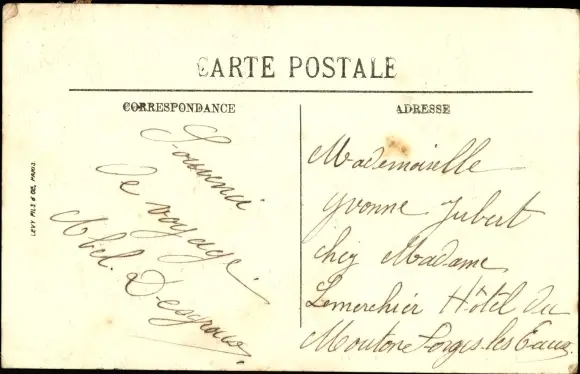 CARTE POSTALE
CORRESPONDANCE
Souvenir
de voyage.
Abel. Desgrous
ADRESSE
Mademoiselle
Yvonne Jubert
chez Madame
Lemerchier Hôtel du
Moutons Forges les Eaux.
LEVY FILS & CO., PARIS.